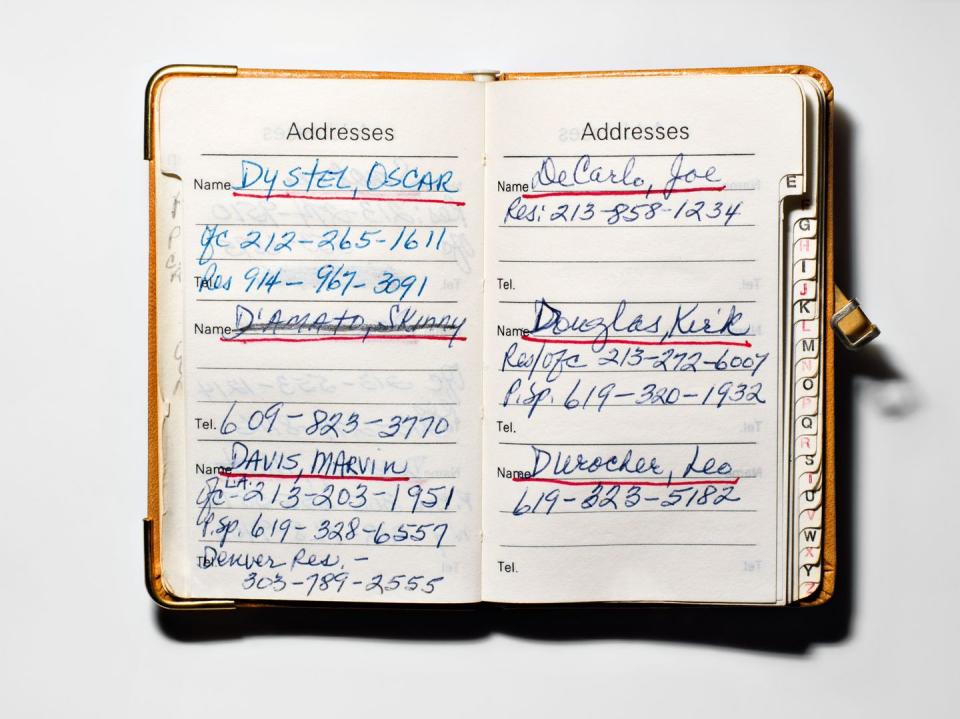 Addresses
Name Dystel, Oscar
Ofc 212-265-1611
Tel. Res 914-967-3091
Name D'Amato, Skinny
Tel. 609-823-3770
Name Davis, Marvin
L.A. Ofc-213-203-1951
P.Sp. 619-328-6557
Tel. Denver Res. -
303-789-2555
Addresses
Name DeCarlo, Joe
Res: 213-858-1234
Tel.
Name Douglas, Kirk
Res/Ofc 213-272-6007
P.Sp. 619-320-1932
Tel.
Name Durocher, Leo
619-323-5182
Tel.
E
G
H
I
J
K
L
M
N
O
P
Q
R
S
T
U
V
W
X
Y
Z